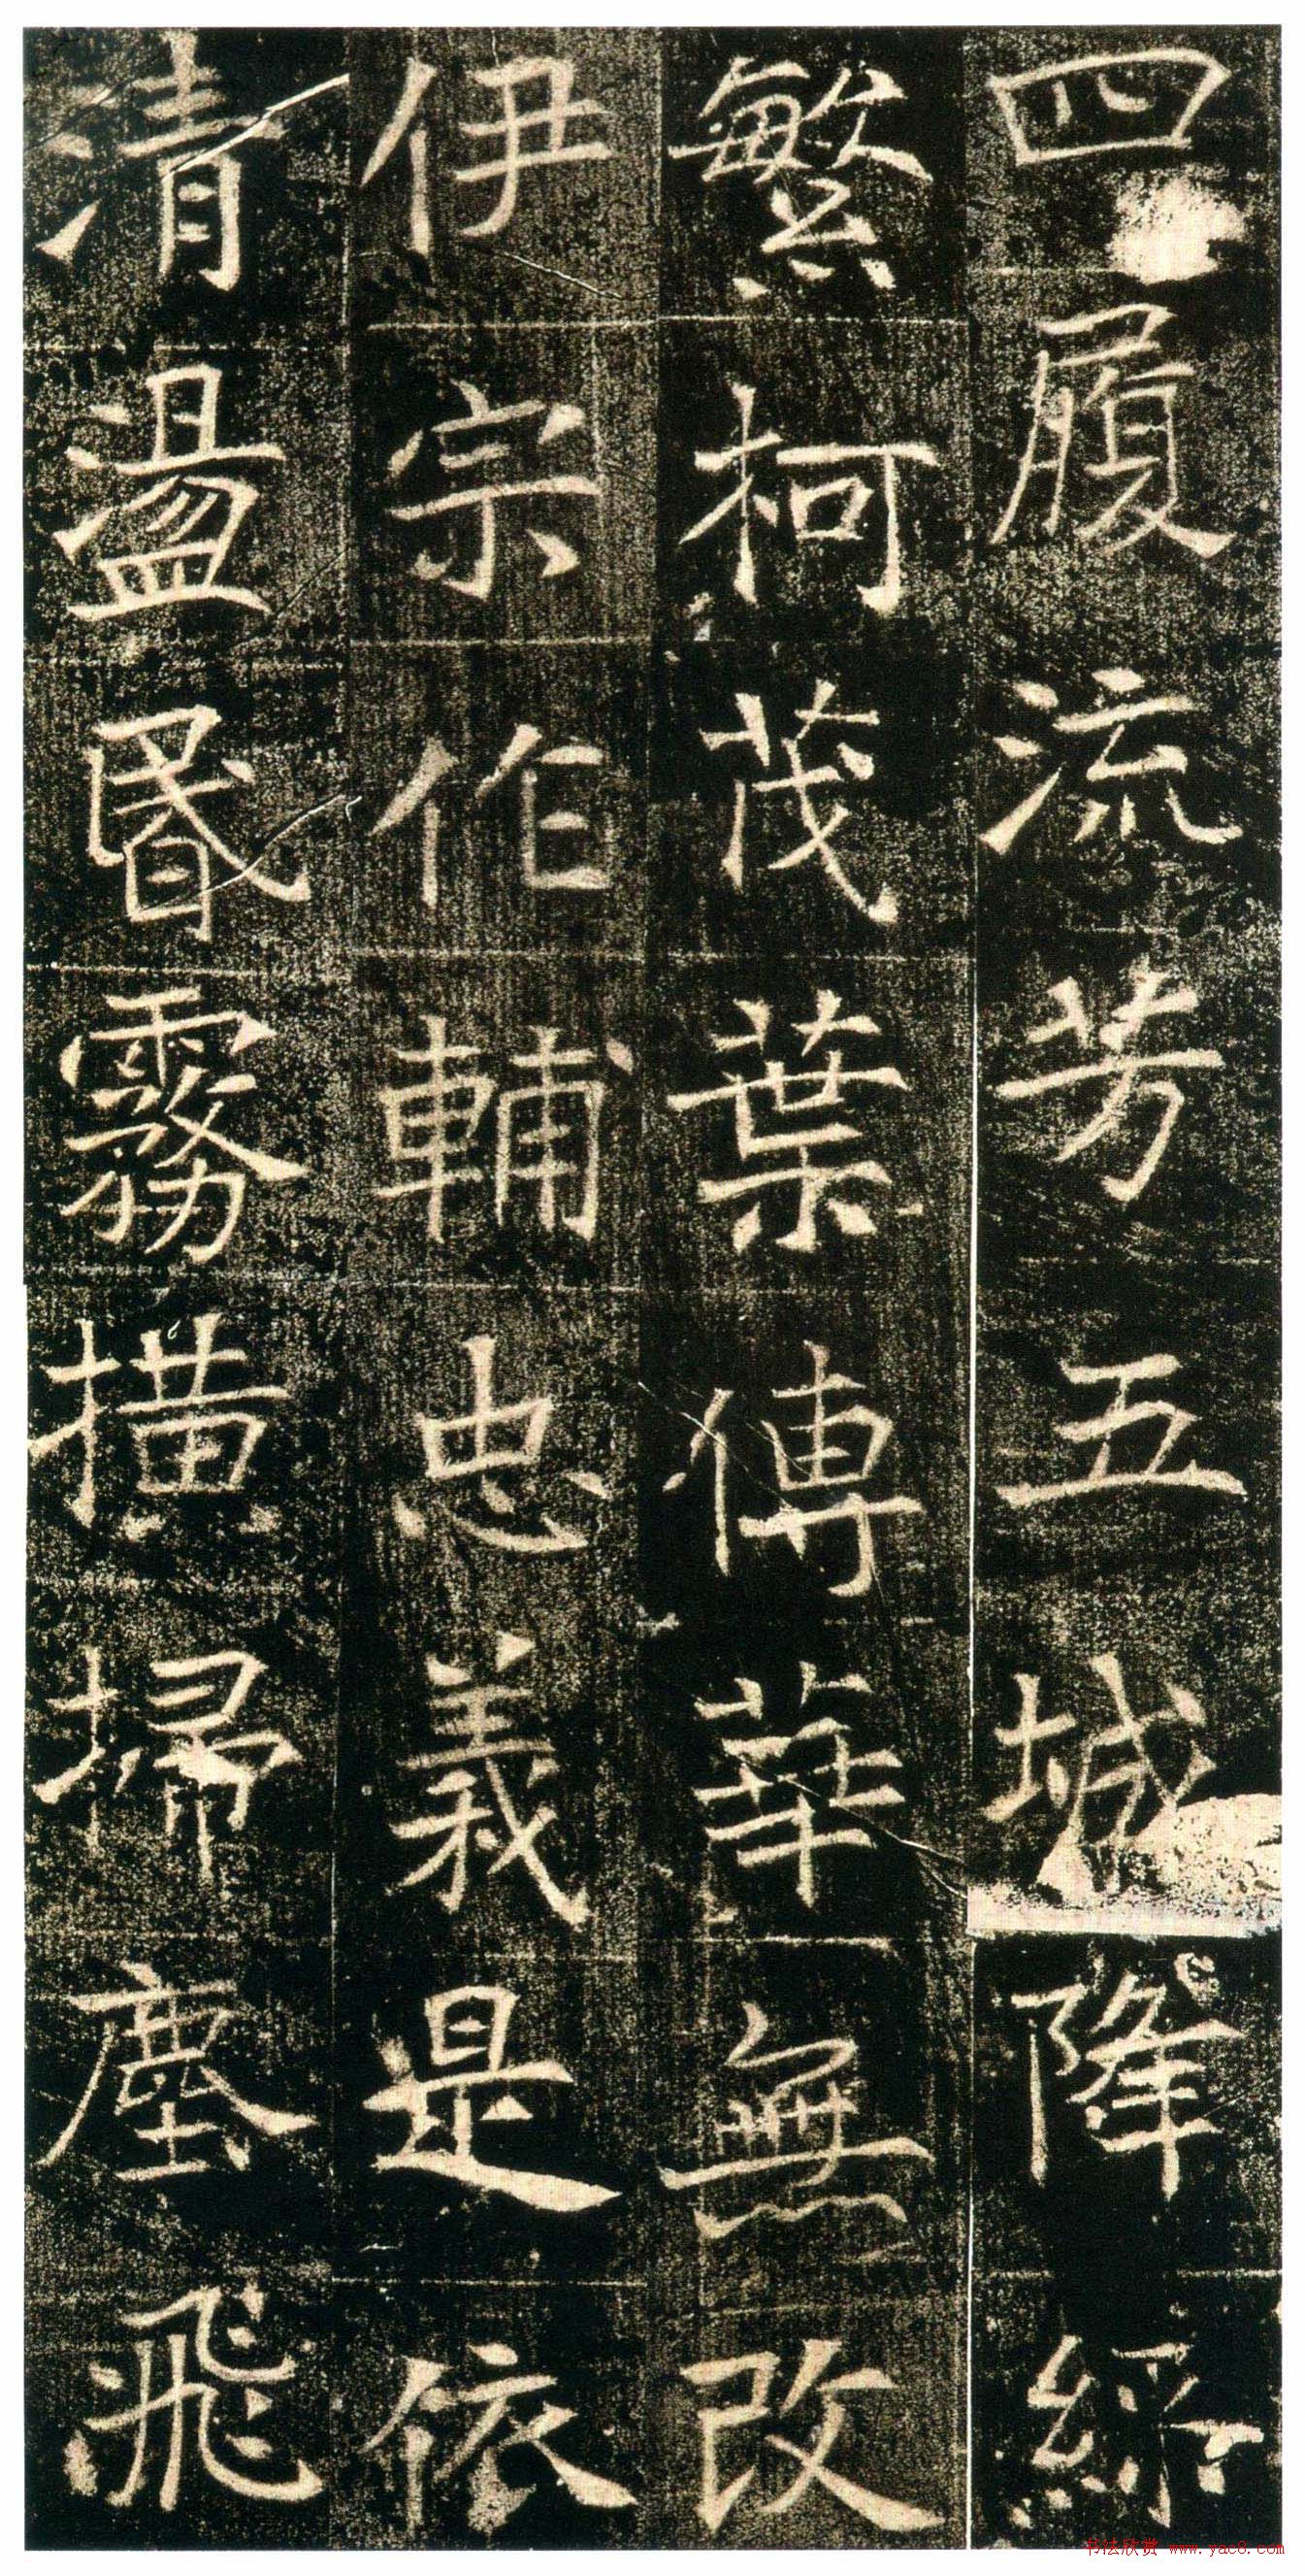 四履流芳五城降綵
繁柯茂葉傳華無改
伊宗作輔忠義是依
清盪昬霧撗埽塵飛
书法欣赏 www.yac8.com